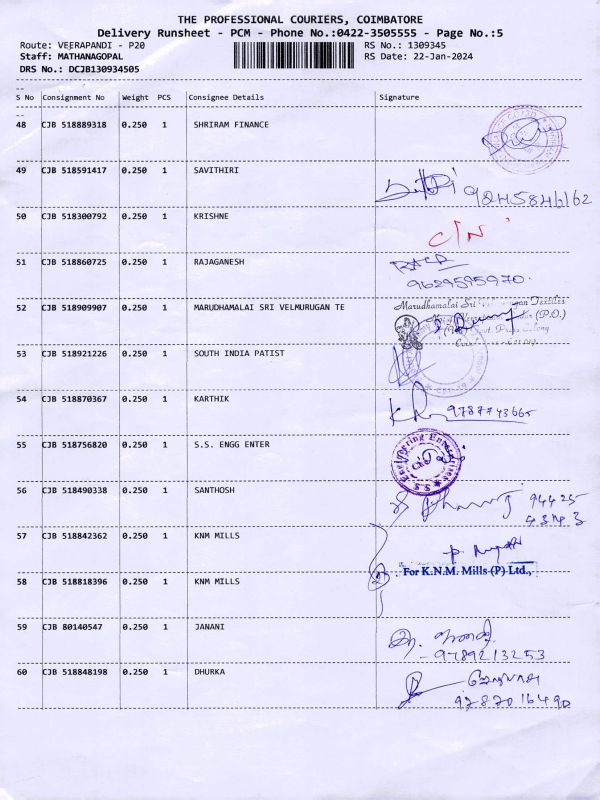 THE PROFESSIONAL COURIERS, COIMBATORE
Delivery Runsheet - PCM - Phone No.:0422-3505555 - Page No.:5
Route: VEERAPANDI - P20 RS No.: 1309345
Staff: MATHANAGOPAL RS Date: 22-Jan-2024
DRS No.: DCJB130934505
--
S No Consignment No Weight PCS Consignee Details Signature
--
48 CJB 518889318 0.250 1 SHRIRAM FINANCE
49 CJB 518591417 0.250 1 SAVITHIRI 9845846162
50 CJB 518300792 0.250 1 KRISHNE C/N
51 CJB 518860725 0.250 1 RAJAGANESH
9629595970
52 CJB 518909907 0.250 1 MARUDHAMALAI SRI VELMURUGAN TE Marudhamalai Sri Textiles
(P.O.)
53 CJB 518921226 0.250 1 SOUTH INDIA PATIST
54 CJB 518870367 0.250 1 KARTHIK 9787743665
55 CJB 518756820 0.250 1 S.S. ENGG ENTER S.S Engineering Enterprises
56 CJB 518490338 0.250 1 SANTHOSH 94425
57 CJB 518842362 0.250 1 KNM MILLS
For K.N.M. Mills (P) Ltd.,
58 CJB 518818396 0.250 1 KNM MILLS
59 CJB 80140547 0.250 1 JANANI
- 9789213253
60 CJB 518848198 0.250 1 DHURKA
9787016490